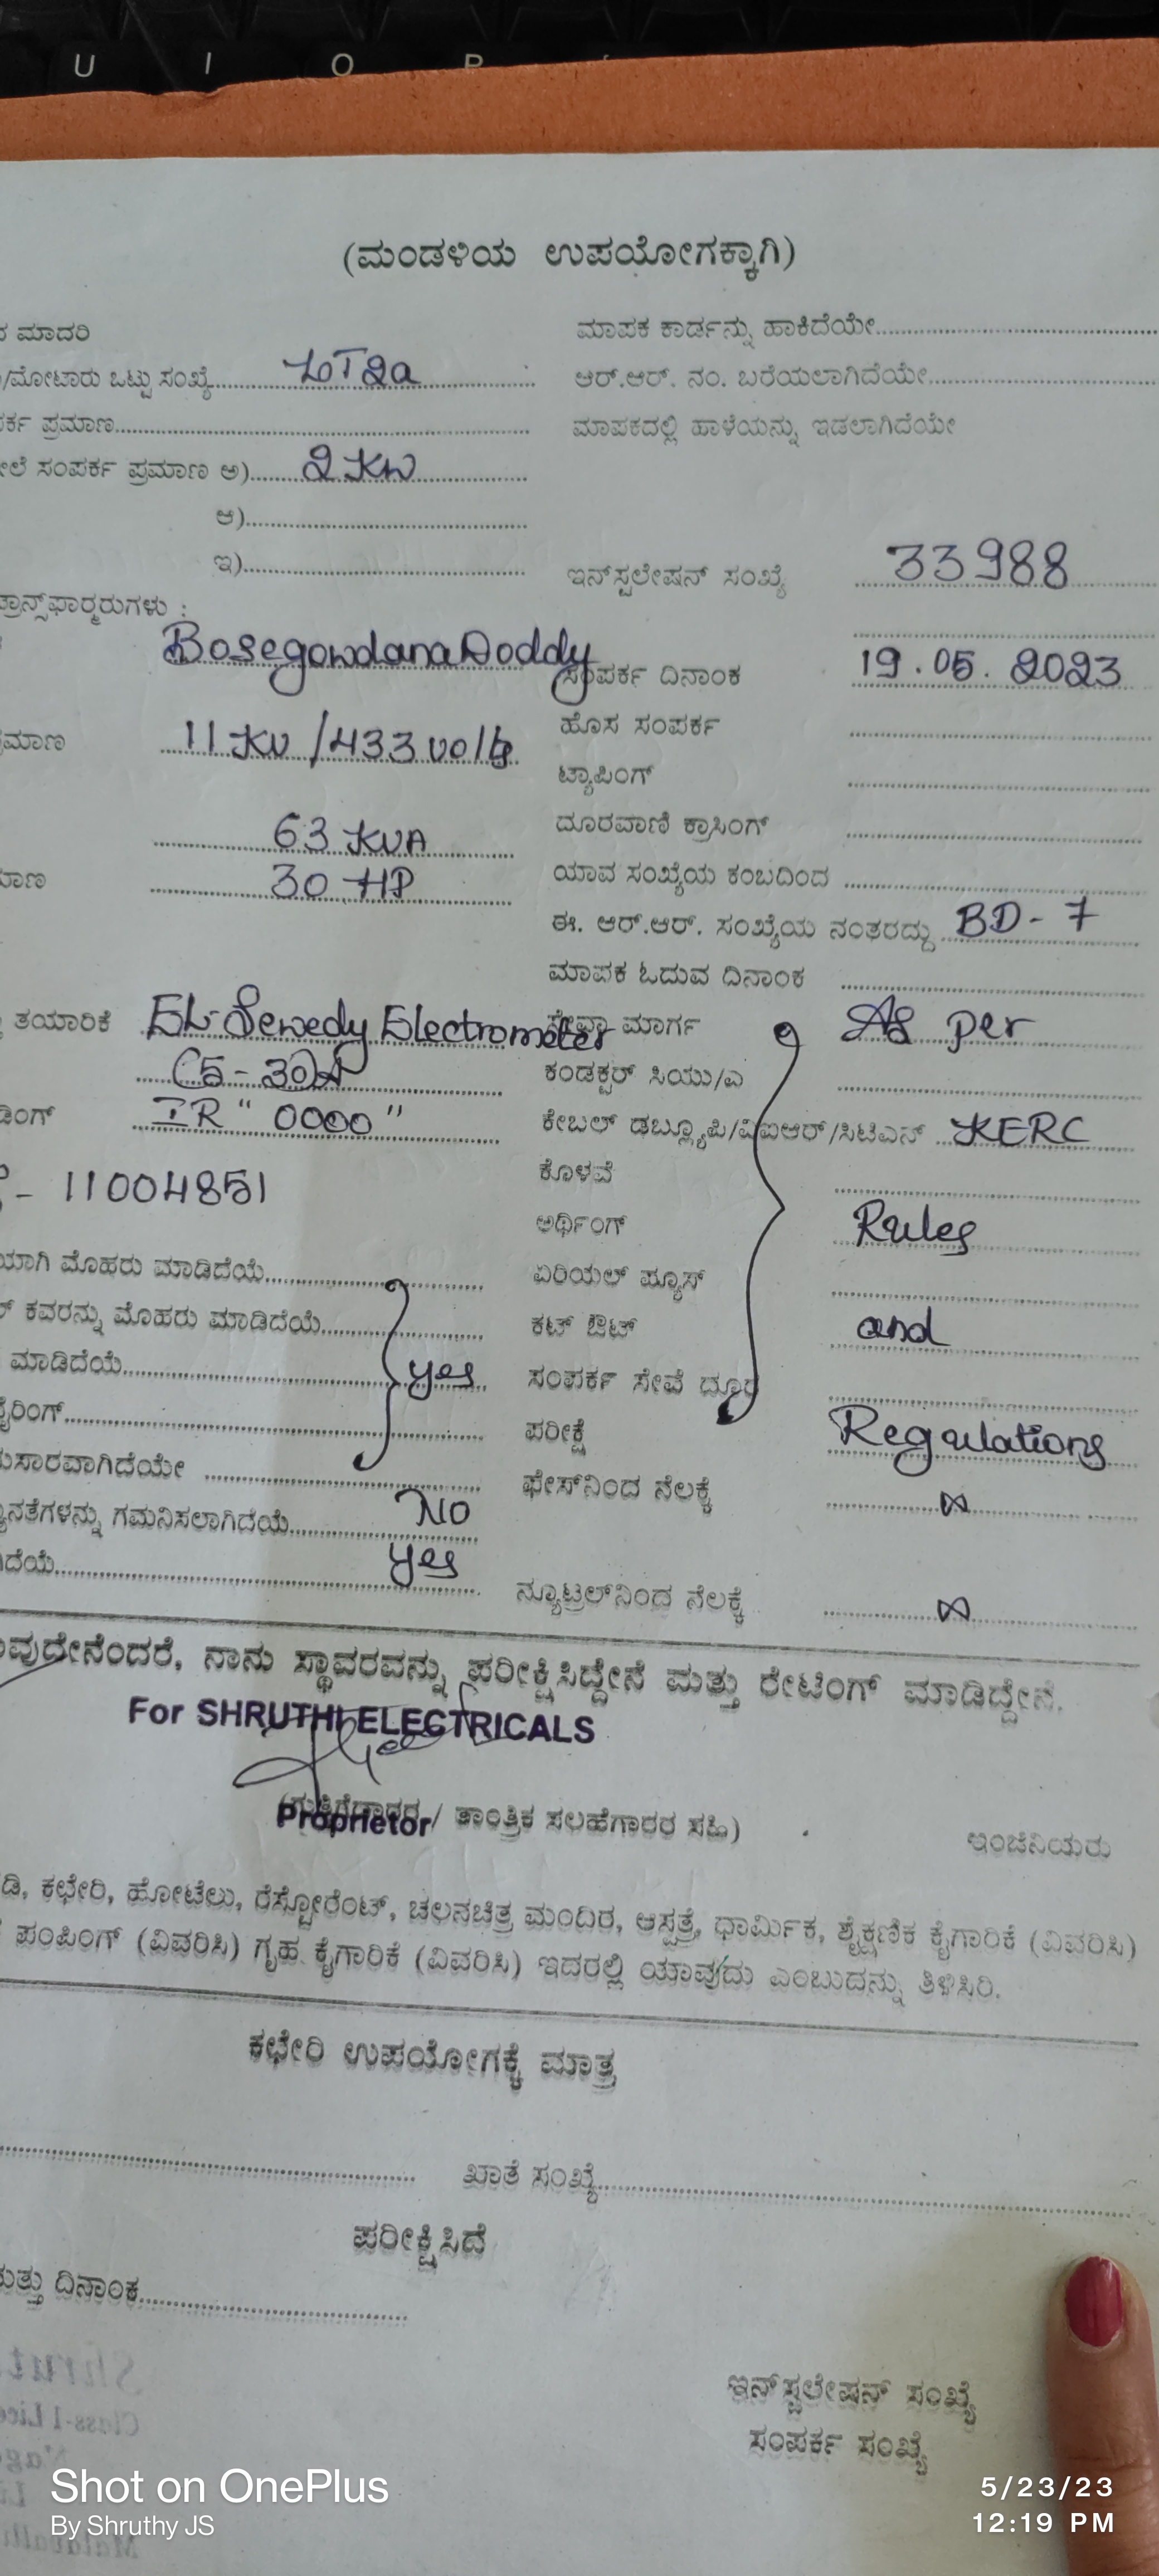 U I O P
(ಮಂಡಳಿಯ ಉಪಯೋಗಕ್ಕಾಗಿ)
ಮಾದರಿ
/ಮೋಟಾರು ಒಟ್ಟು ಸಂಖ್ಯೆ LT2a
ಪ್ರಮಾಣ
ಸಂಪರ್ಕ ಪ್ರಮಾಣ ಅ) 2 KW
ಆ)
ಇ)
ಟ್ರಾನ್ಸ್‌ಫಾರ್ಮರುಗಳು :
BosegowdanaDoddy
11 KV /433 volts
63 KVA
30 HP
ತಯಾರಿಕೆ EL-Sewedy Electrometer
(5-30)A
IR "0000"
- 11004851
ಮೊಹರು ಮಾಡಿದೆಯೆ
ಕವರನ್ನು ಮೊಹರು ಮಾಡಿದೆಯೆ
ಮಾಡಿದೆಯೆ yes
ಗಮನಿಸಲಾಗಿದೆಯೆ No
yes
ಮಾಪಕ ಕಾರ್ಡನ್ನು ಹಾಕಿದೆಯೇ
ಆರ್.ಆರ್. ನಂ. ಬರೆಯಲಾಗಿದೆಯೇ
ಮಾಪಕದಲ್ಲಿ ಹಾಳೆಯನ್ನು ಇಡಲಾಗಿದೆಯೇ
ಇನ್‌ಸ್ಟಲೇಷನ್ ಸಂಖ್ಯೆ 33988
ಸಂಪರ್ಕ ದಿನಾಂಕ 19.05.2023
ಹೊಸ ಸಂಪರ್ಕ
ಟ್ಯಾಪಿಂಗ್
ದೂರವಾಣಿ ಕ್ರಾಸಿಂಗ್
ಯಾವ ಸಂಖ್ಯೆಯ ಕಂಬದಿಂದ
ಈ. ಆರ್.ಆರ್. ಸಂಖ್ಯೆಯ ನಂತರದ್ದು BD-7
ಮಾಪಕ ಓದುವ ದಿನಾಂಕ
ಸೇವಾ ಮಾರ್ಗ As per
ಕಂಡಕ್ಟರ್ ಸಿಯು/ಎ
ಕೇಬಲ್ ಡಬ್ಲ್ಯೂಪಿ/ವಿಐಆರ್/ಸಿಟಿಎಸ್ KERC
ಕೊಳವೆ
ಅರ್ಥಿಂಗ್ Rules
ಏರಿಯಲ್ ಫ್ಯೂಸ್
ಕಟ್ ಔಟ್ and
ಸಂಪರ್ಕ ಸೇವೆ ದೂರ
ಪರೀಕ್ಷೆ Regulations
ಫೇಸ್‌ನಿಂದ ನೆಲಕ್ಕೆ ∞
ನ್ಯೂಟ್ರಲ್‌ನಿಂದ ನೆಲಕ್ಕೆ ∞
ನಾನು ಸ್ಥಾವರವನ್ನು ಪರೀಕ್ಷಿಸಿದ್ದೇನೆ ಮತ್ತು ರೇಟಿಂಗ್ ಮಾಡಿದ್ದೇನೆ.
For SHRUTHI ELECTRICALS
Proprietor
(ಗುತ್ತಿಗೆದಾರರ / ತಾಂತ್ರಿಕ ಸಲಹೆಗಾರರ ಸಹಿ)
ಇಂಜಿನಿಯರು
ಕಛೇರಿ, ಹೋಟೆಲು, ರೆಸ್ಟೋರೆಂಟ್, ಚಲನಚಿತ್ರ ಮಂದಿರ, ಆಸ್ಪತ್ರೆ, ಧಾರ್ಮಿಕ, ಶೈಕ್ಷಣಿಕ ಕೈಗಾರಿಕೆ (ವಿವರಿಸಿ)
ಪಂಪಿಂಗ್ (ವಿವರಿಸಿ) ಗೃಹ ಕೈಗಾರಿಕೆ (ವಿವರಿಸಿ) ಇದರಲ್ಲಿ ಯಾವುದು ಎಂಬುದನ್ನು ತಿಳಿಸಿರಿ.
ಕಛೇರಿ ಉಪಯೋಗಕ್ಕೆ ಮಾತ್ರ
ಖಾತೆ ಸಂಖ್ಯೆ
ಪರೀಕ್ಷಿಸಿದೆ
ಮತ್ತು ದಿನಾಂಕ
ಇನ್‌ಸ್ಟಲೇಷನ್ ಸಂಖ್ಯೆ
ಸಂಪರ್ಕ ಸಂಖ್ಯೆ
Shot on OnePlus
By Shruthy JS
5/23/23
12:19 PM